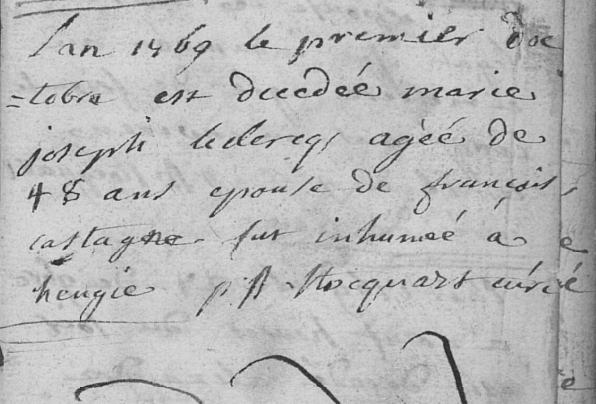 Lan 1769 le premier doc
=tobre est decedée marie
joseph leclercq ageé de
48 ans epouse de françois
castagne fut inhumeé à
hengie p f Stocquart curé